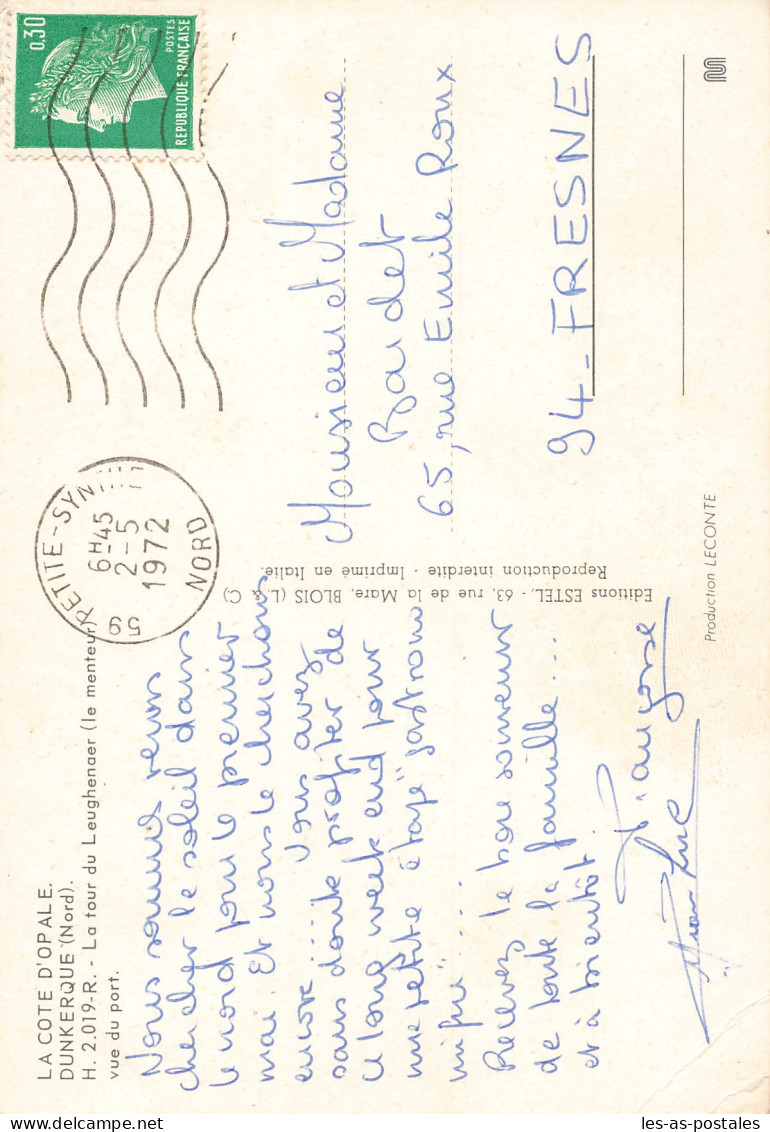 LA COTE D'OPALE.
DUNKERQUE (Nord).
H. 2.019-R. - La tour du Leughenaer (le menteur)
vue du port.
Nous sommes venus
chercher le soleil dans
le nord pour le premier
mai. Et nous le cherchons
encore.... Vous avez
sans doute profiter de
ce long week end pour
une petite étape "gastrono
mique"....
Recevez le bon souvenir
de toute la famille...
et à bientôt
Françoise
Editions ESTEL - 63, rue de la Mare, BLOIS (L. & C)
Reproduction interdite - Imprimé en Italie.
59 PETITE-SYN
6H45
2-5
1972
NORD
0,30
POSTES
REPUBLIQUE FRANÇAISE
Monsieur et Madame
Bardet
65, rue Emile Roux
94-FRESNES
Production LECONTE
les-as-postales